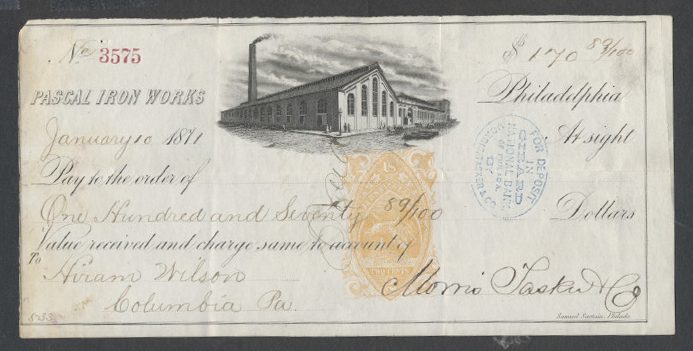 No 3575
$ 170 89/100
PASCAL IRON WORKS
Philadelphia
January 10 1871
At sight
Pay to the order of
One Hundred and Seventy 89/100 Dollars
Value received and charge same to account of
To Hiram Wilson
Columbia Pa.
Morris Tasker & Co
FOR DEPOSIT
IN
GIRARD
NATIONAL BANK
OF PHILADA.
BY
& CO
TWO CENTS
Samuel Sartain, Philada.